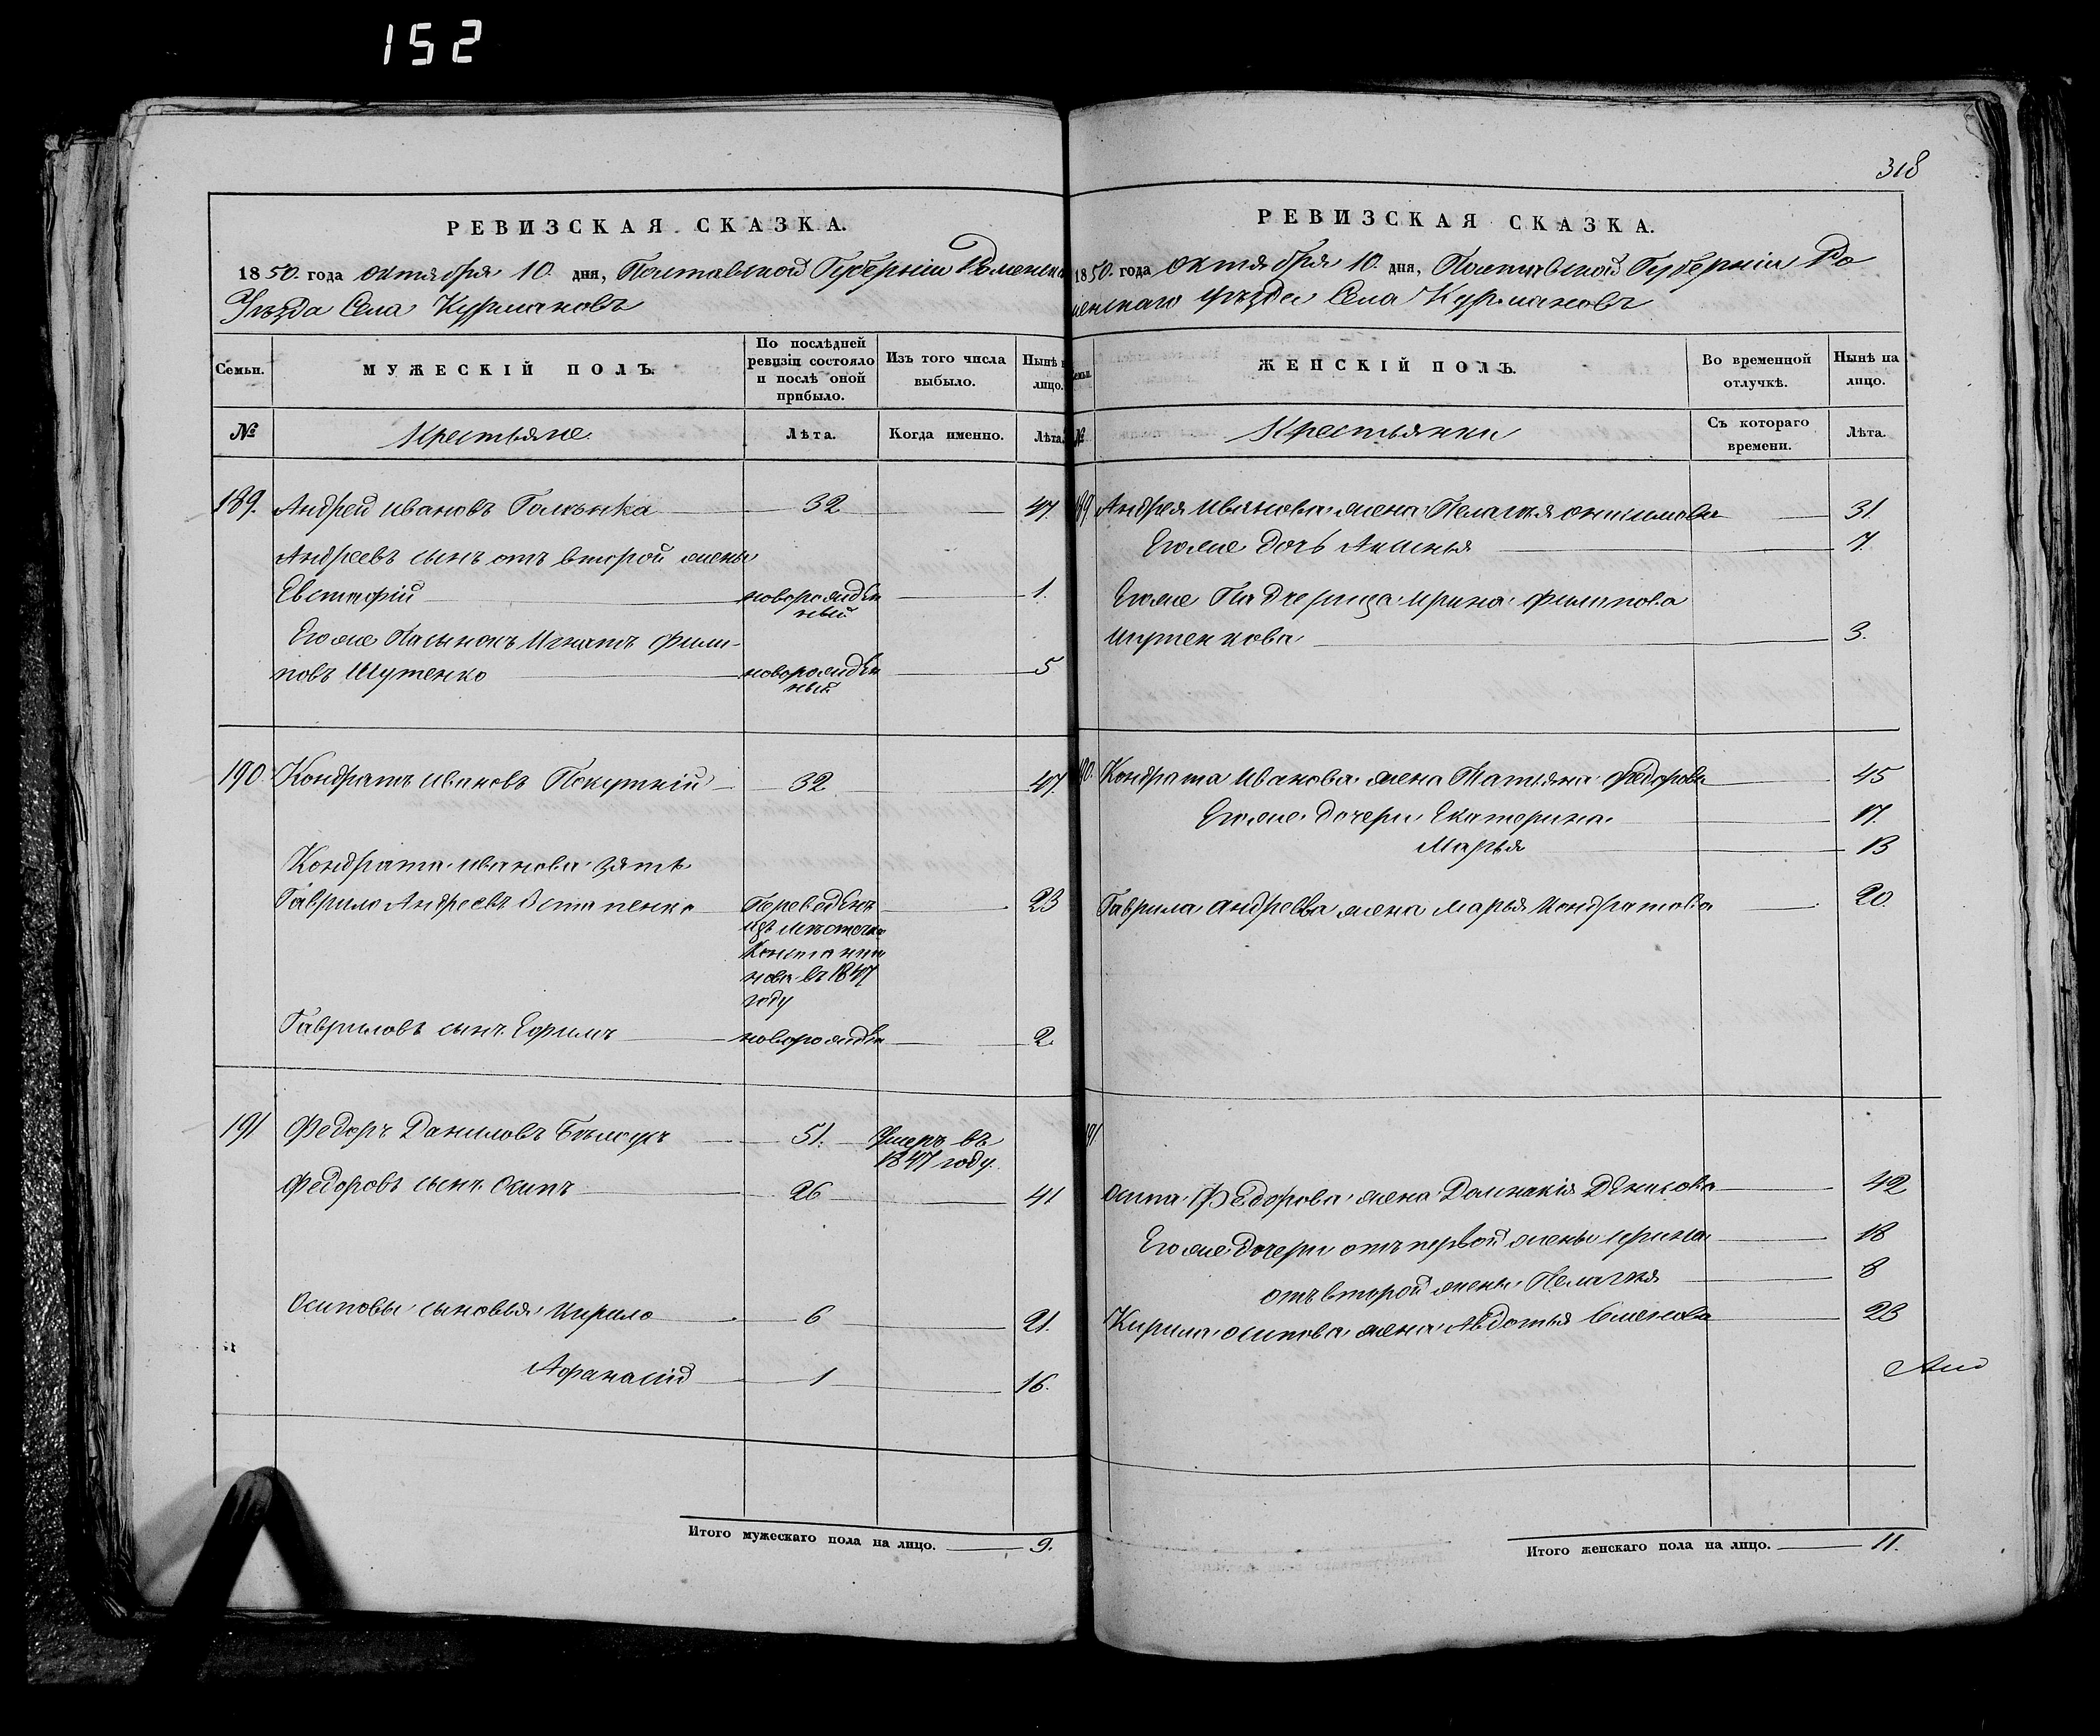 152
РЕВИЗСКАЯ СКАЗКА.
1850. года октября 10. дня, Полтавской Губерніи Роменска
Уѣзда Села Курмановъ
Семьи.
МУЖЕСКІЙ ПОЛЪ.
По послѣдней ревизіи состояло и послѣ оной прибыло.
Изъ того числа выбыло.
Нынѣ на лицо.
№
Крестьяне.
Лѣта.
Когда именно.
Лѣта.
189. Андрей Ивановъ 32 47.
Андреевъ сынъ отъ второй жены
Евстафій новорожден 1.
ный
Егоже Пасынокъ Игнатъ Фили-
повъ Шутенко новорожден 5
ный
190. Кондратъ Ивановъ Покутній 32 47.
Кондрата Иванова зять
Гаврило Андреевъ Остапенко Переведенъ 23
изъ мѣстечка
Константи
нова въ 1847
году
Гавриловъ сынъ Ефимъ новорожден 2.
191 Федоръ Даниловъ 51. Умеръ въ
1847 году.
Федоровъ сынъ Осипъ 26 41
Осиповы сыновья Кирило 6 21.
Афанасій 1 16.
Итого мужескаго пола на лицо. 9.
318
РЕВИЗСКАЯ СКАЗКА.
1850. года октября 10. дня, Полтавской Губерніи Ро
менскаго уѣзда Села Курмановъ
Семьи.
ЖЕНСКІЙ ПОЛЪ.
Во временной отлучкѣ.
Нынѣ на лицо.
№
Крестьянки
Съ котораго времени.
Лѣта.
189 Андрея Иванова жена Пелагѣя Онисимова 31.
Егоже дочь Аксинья 7.
Егоже Падчерица Ирина Филипова
Шутенкова 3.
190. Кондрата Иванова жена Татьяна Федорова 45
Егоже дочери Екатерина 17.
Марья 13
Гаврила Андреева жена Марья Кондратова 20.
191
Осипа Федорова жена Домникія Денисова 42
Егоже дочери отъ первой жены Ирина 18
отъ второй жены Пелагѣя 8
Кирила Осипова жена Авдотья Семенова 23
Итого женскаго пола на лицо. 11.